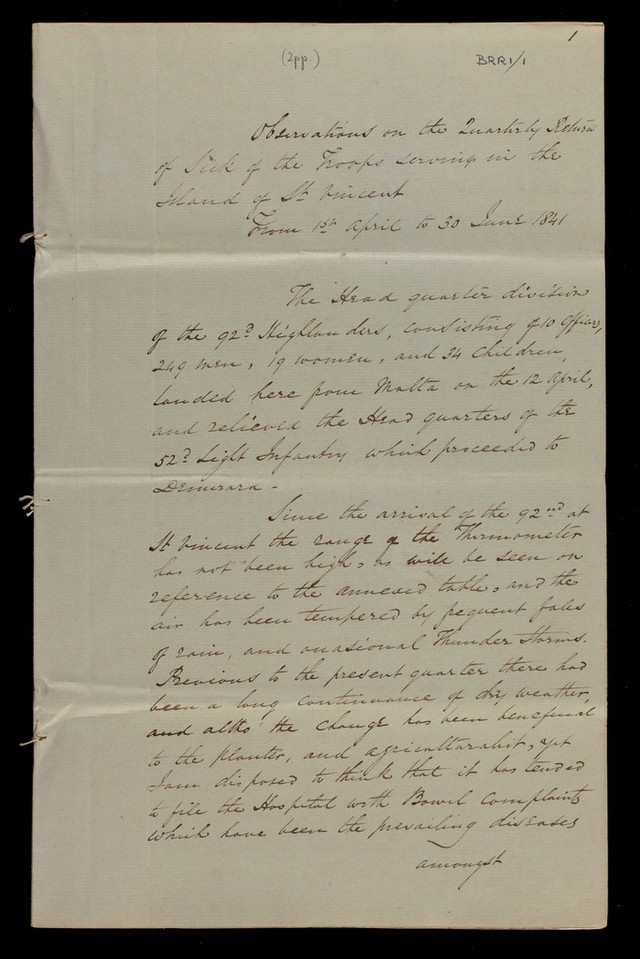 1
(2pp.)
BRR1/1
Observations on the Quarterly Return
of Sick of the Troops serving in the
Island of St Vincent
From 1st April to 30 June 1841
The Head quarter division
of the 92d Highlanders, consisting of 10 Officers,
249 men, 19 women, and 34 Children,
landed here from Malta on the 12 April,
and relieved the Head quarters of the
52d Light Infantry which proceeded to
Demerara -
Since the arrival of the 92nd at
St Vincent the range of the Thermometer
has not been high, as will be seen on
reference to the annexed table, and the
air has been tempered by frequent falls
of rain, and occasional Thunder Storms.
Previous to the present quarter there had
been a long continuance of dry weather,
and altho' the change has been beneficial
to the planter, and agriculturalist, yet
I am disposed to think that it has tended
to fill the Hospital with Bowel Complaints
which have been the prevailing diseases
amongst